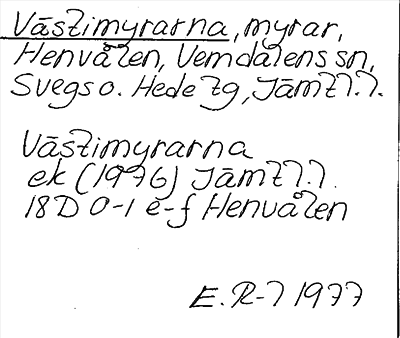 Västimyrarna, myrar,
Henvålen, Vemdalens sn,
Svegs o. Hede tg, Jämtl.l.
Västimyrarna
ek (1976) Jämtl.l.
18D 0-1 e-f Henvålen
E. R-l 1977